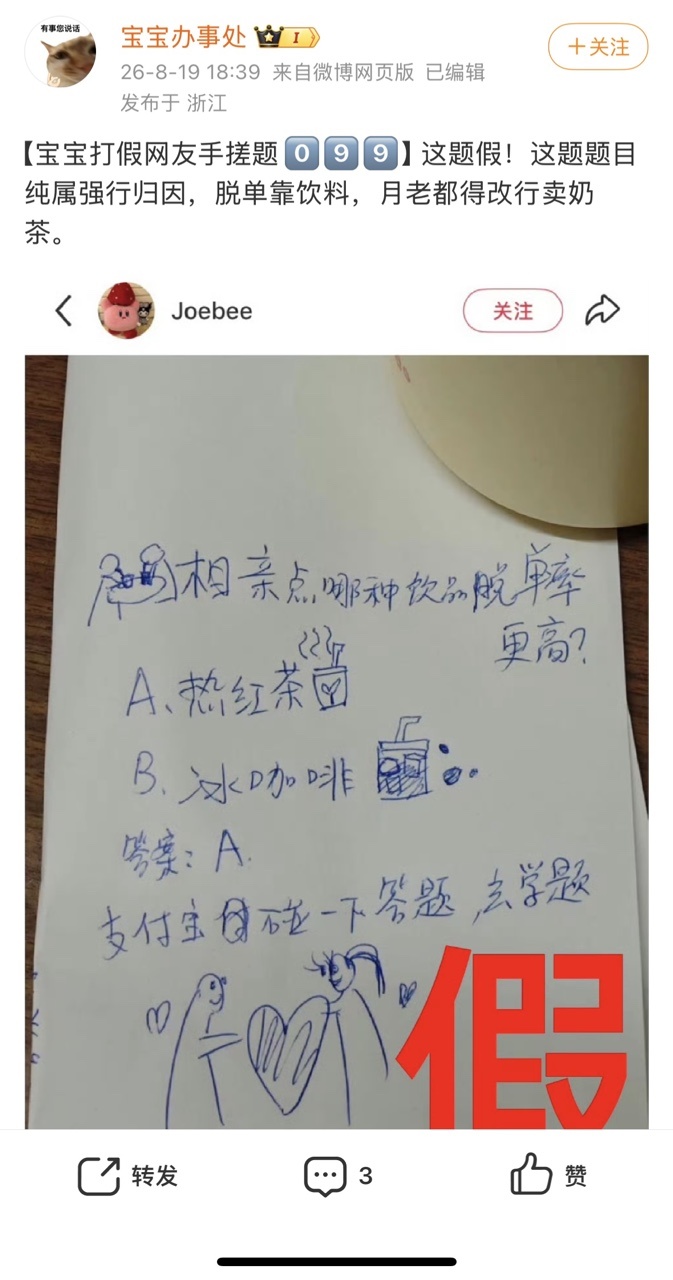 有事您说话
宝宝办事处
I
+关注
26-8-19 18:39 来自微博网页版 已编辑
发布于 浙江
【宝宝打假网友手搓题099】这题假！这题题目
纯属强行归因，脱单靠饮料，月老都得改行卖奶
茶。
Joebee
关注
相亲点哪种饮品脱单率
更高？
A、热红茶
B、冰咖啡
答案：A.
支付宝碰一下答题，去学题
假
转发
3
赞